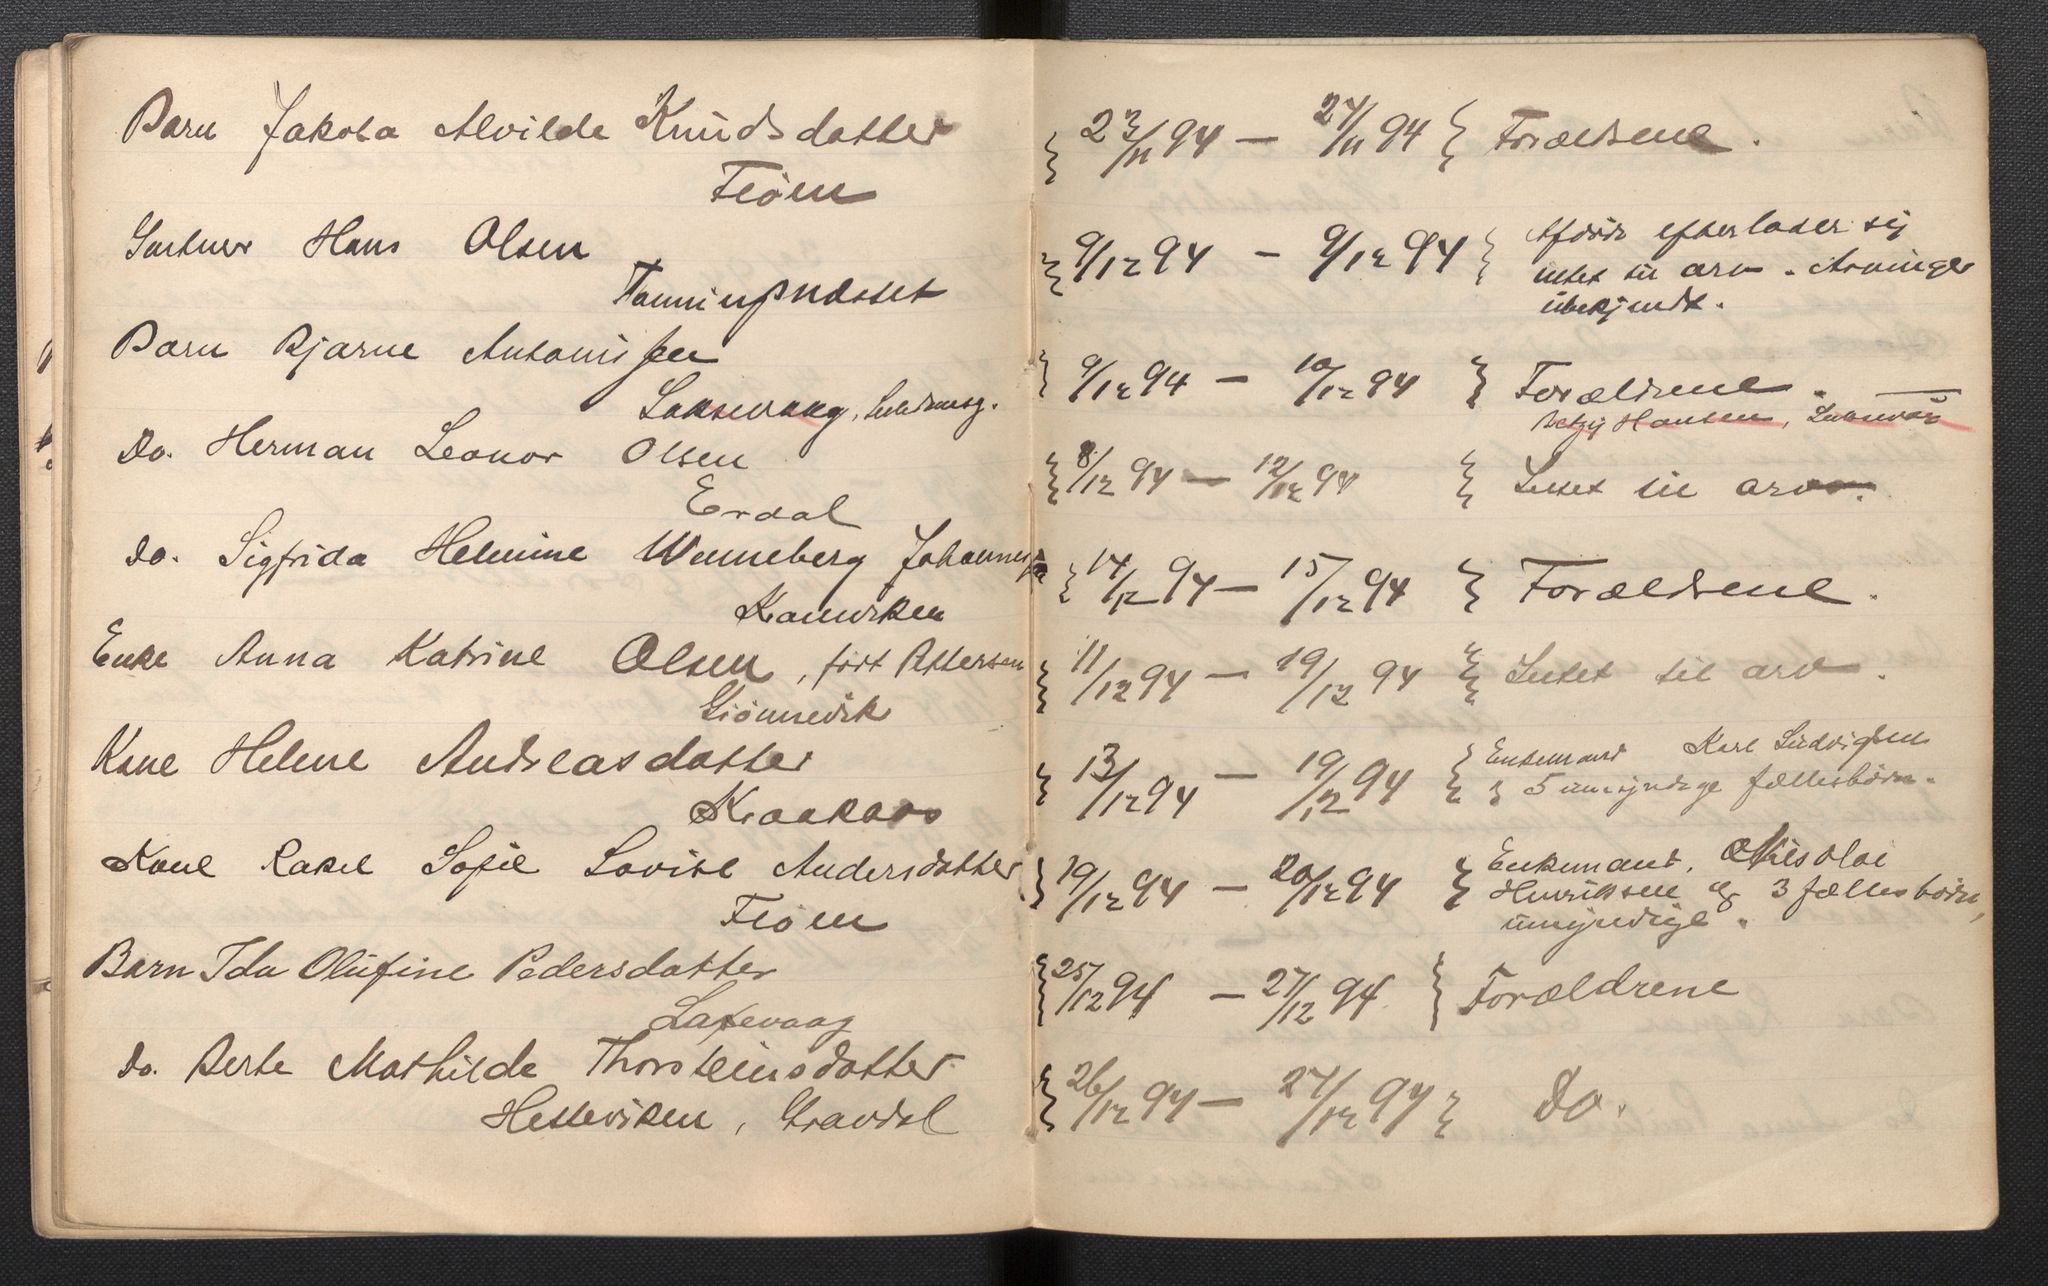 Barn Jakoba Alvilde Knudsdatter
Fløen
23/11 94 — 24/11 94 Forældrene.
Gartner Hans Olsen
9/12 94 — 9/12 94 Afdøde efterlader sig
intet til arv. Arvinger
ubekjendt.
Barn Bjarne Antonissen
Laksevaag,
9/12 94 — 10/12 94 Forældrene. —
Betzy Hansen,
Do. Herman Leonor Olsen
Erdal
8/12 94 — 12/12 94 Intet til arv.
Do. Sigfrida Helmine Wenneberg
14/12 94 — 15/12 94 Forældrene.
Enke Anna Katrine Olsen, født Pettersen
11/12 94 — 19/12 94 Intet til arv.
Kone Helene Andreasdatter
13/12 94 — 19/12 94 Enkemand Karl Ludvigsen
& 5 umyndige fællesbørn.
Kone Rakel Sofie Lovise Andersdatter
Fløen
19/12 94 — 20/12 94 Enkemand, Nils Olai
Henriksen og 3 fællesbørn,
umyndige.
Barn Ida Olufine Pedersdatter
Laxevaag
25/12 94 — 27/12 94 Forældrene
Do. Berte Mathilde Thorsteinsdatter
Hetleviken, Gravdal
26/12 94 — 27/12 94 Do.